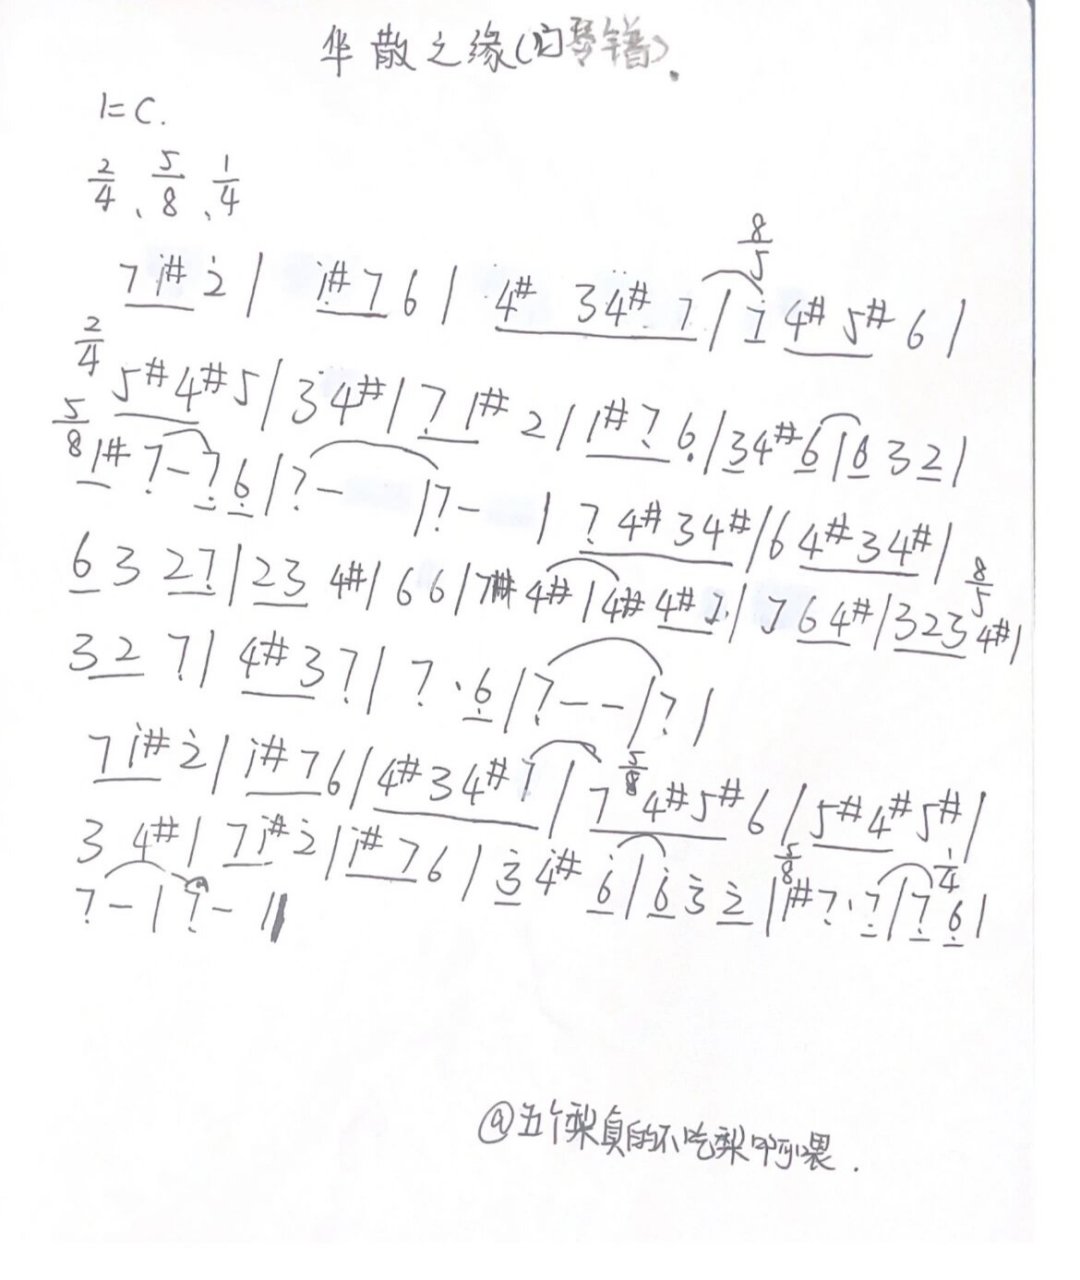 华散之缘(口琴谱).
1=C.
2/4、5/8、1/4
8/5
7 i# 2̇ | i# 7 6 | 4# 3 4# 7 | 7 4# 5# 6 |
2/4
5# 4# 5 | 3 4# | 7̣ 1# 2 | 1# 7̣ 6̣ | 3 4# 6 | 6 3 2 |
5/8
1# 7̣ - 7̣ 6̣ | 7̣ - | 7̣ - | 7̣ 4# 3 4# | 6 4# 3 4# |
6 3 2 7̣ | 2 3 4# | 6 6 | 7# 4# | 4# 4# 7. | 7 6 4# | 8/5 3 2 3 4# |
3 2 7̣ | 4# 3 7̣ | 7̣ · 6̣ | 7̣ - - | 7̣ |
7 i# 2̇ | i# 7 6 | 4# 3 4# 7 | 5/8 7 4# 5# 6 | 5# 4# 5# |
3 4# | 7 i# 2̇ | i# 7 6 | 3̇ 4̇# 6̇ | 6̇ 3̇ 2̇ | 5/8 1# 7̣ · 7̣ | 1/4 7̣ 6̣ |
7̣ - | 7̣ - ||
@五个梨真的不吃梨啊喂.